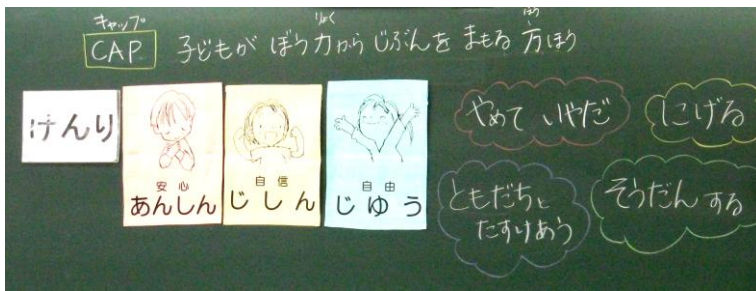 キャップ
りょく
ほう
CAP 子どもが ぼう力から じぶんを まもる 方ほう
けんり
安心
あんしん
自信
じしん
自由
じゆう
やめて いやだ
にげる
ともだちと
たすけあう
そうだん する